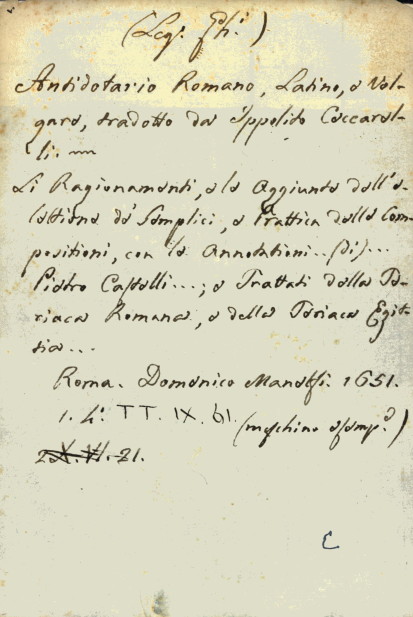 (Leg. Gh.)
Antidotario Romano, Latino, e Vol-
gare, tradotto da Ippolito Ceccarel-
li.
Li Ragionamenti, e le Aggiunte dell'e-
lettione de' Semplici, e Prattica delle Com-
positioni, con le Annotationi... (di)...
Pietro Castelli...; e Trattati della Te-
riaca Romana, e della Teriaca Egit-
tia...
Roma. Domenico Manelfi. 1651.
1. 4° TT. IX. 61.
(meschino esemp.e)
2.X.VI.21.
C